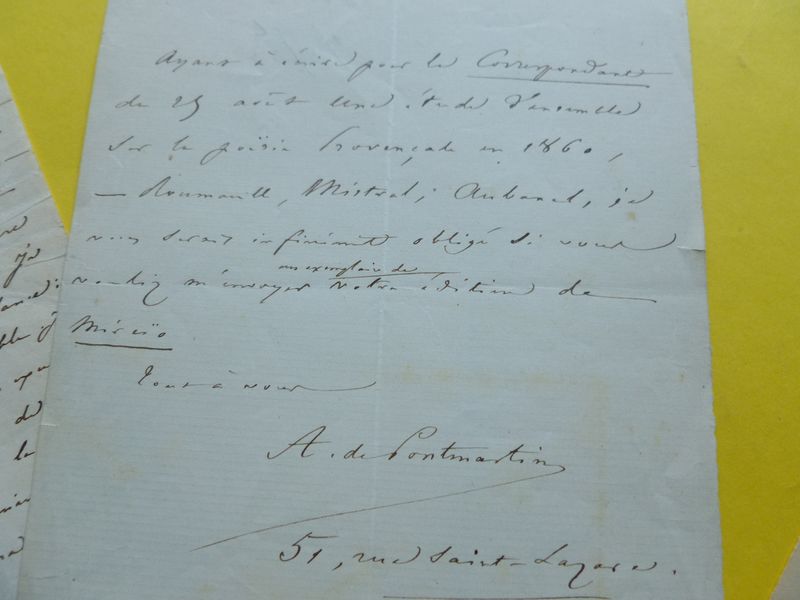 Ayant à écrire pour le Correspondant
du 25 août une étude d'ensemble
sur la poësie Provençale en 1860,
— Roumanille, Mistral, Aubanel, je
vous serais infiniment obligé si vous
vouliez m'envoyer un exemplaire de votre édition de
Mireïo.
Tout à vous
A. de Pontmartin
51, rue Saint-Lazare.
de
la